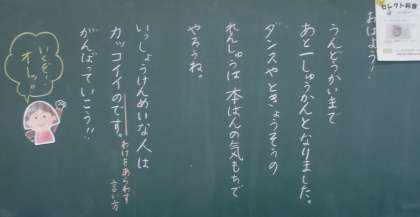 おはよう！
うんどうかいまで
あと一しゅうかんとなりました。
ダンスやときょうそうの
れんしゅうは本ばんの気もちで
やろうね。
いっしょうけんめいな人は
カッコイイのです。
わけをあらわす
言い方
がんばっていこう!!
いくぞ、
オーッ。
セレクト給食